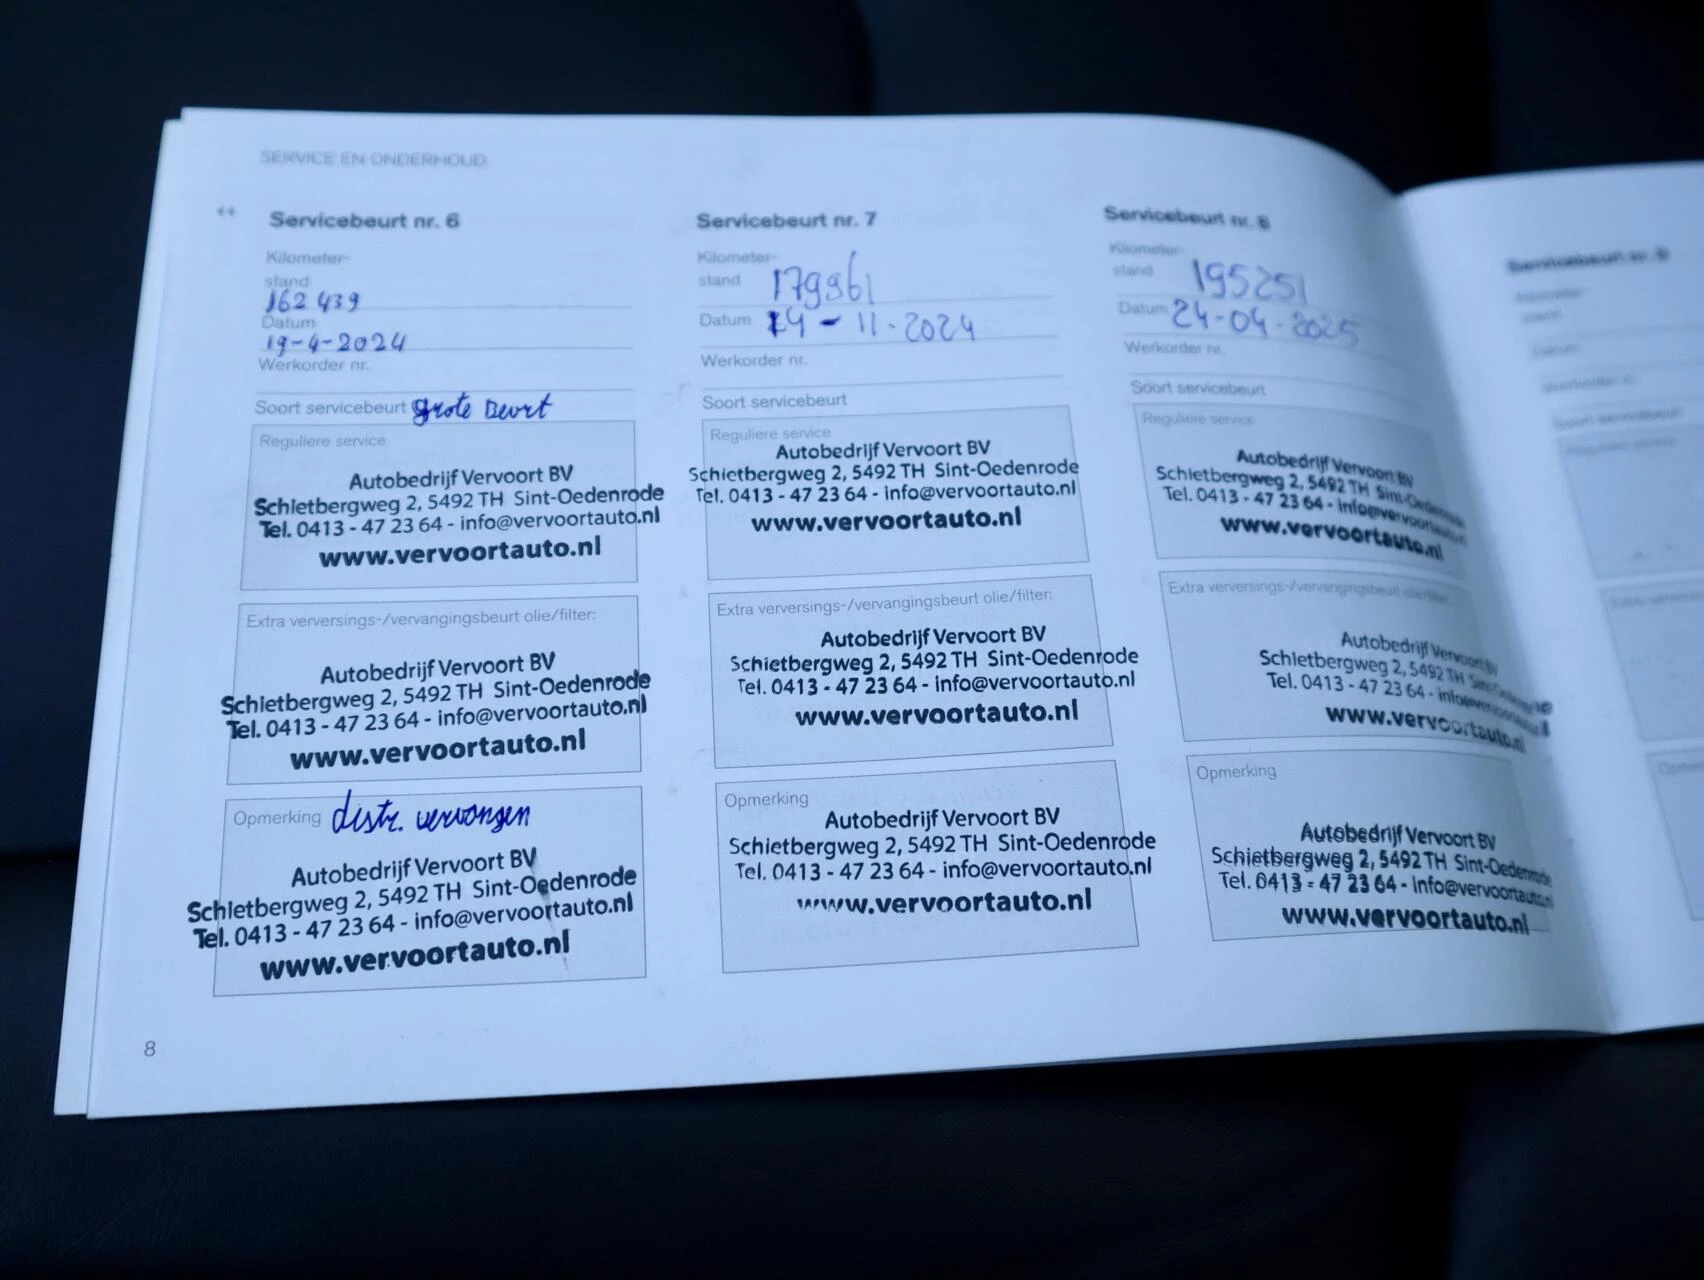 SERVICE EN ONDERHOUD
Servicebeurt nr. 6
Kilometer-
stand
162 439
Datum
19-4-2024
Werkorder nr.
Soort servicebeurt grote Beurt
Reguliere service
Autobedrijf Vervoort BV
Schietbergweg 2, 5492 TH Sint-Oedenrode
Tel. 0413 - 47 23 64 - info@vervoortauto.nl
www.vervoortauto.nl
Extra verversings-/vervangingsbeurt olie/filter:
Autobedrijf Vervoort BV
Schietbergweg 2, 5492 TH Sint-Oedenrode
Tel. 0413 - 47 23 64 - info@vervoortauto.nl
www.vervoortauto.nl
Opmerking distr. vervangen
Autobedrijf Vervoort BV
Schietbergweg 2, 5492 TH Sint-Oedenrode
Tel. 0413 - 47 23 64 - info@vervoortauto.nl
www.vervoortauto.nl
8
Servicebeurt nr. 7
Kilometer-
stand 179961
Datum 14-11-2024
Werkorder nr.
Soort servicebeurt
Reguliere service
Autobedrijf Vervoort BV
Schietbergweg 2, 5492 TH Sint-Oedenrode
Tel. 0413 - 47 23 64 - info@vervoortauto.nl
www.vervoortauto.nl
Extra verversings-/vervangingsbeurt olie/filter:
Autobedrijf Vervoort BV
Schietbergweg 2, 5492 TH Sint-Oedenrode
Tel. 0413 - 47 23 64 - info@vervoortauto.nl
www.vervoortauto.nl
Opmerking
Autobedrijf Vervoort BV
Schietbergweg 2, 5492 TH Sint-Oedenrode
Tel. 0413 - 47 23 64 - info@vervoortauto.nl
www.vervoortauto.nl
Servicebeurt nr. 8
Kilometer-
stand 195251
Datum 24-04-2025
Werkorder nr.
Soort servicebeurt
Reguliere service
Autobedrijf Vervoort BV
Schietbergweg 2, 5492 TH Sint-Oedenrode
Tel. 0413 - 47 23 64 - info@vervoortauto.nl
www.vervoortauto.nl
Extra verversings-/vervangingsbeurt olie/filter:
Autobedrijf Vervoort BV
Schietbergweg 2, 5492 TH Sint-Oedenrode
Tel. 0413 - 47 23 64 - info@vervoortauto.nl
www.vervoortauto.nl
Opmerking
Autobedrijf Vervoort BV
Schietbergweg 2, 5492 TH Sint-Oedenrode
Tel. 0413 - 47 23 64 - info@vervoortauto.nl
www.vervoortauto.nl
Servicebeurt nr. 9
Kilometer-
stand
Datum
Werkorder nr.
Soort servicebeurt
Reguliere service